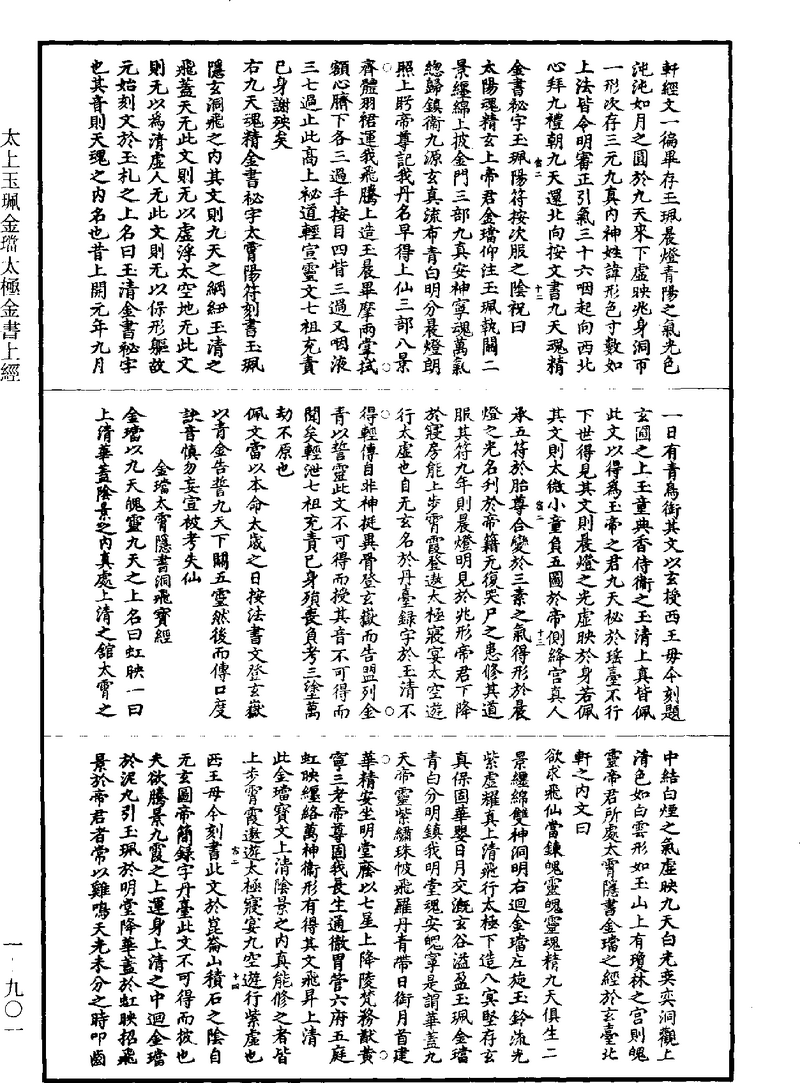 太上玉珮金璫太極金書上經
一·九〇一
軒經文一徧畢存玉珮晨燈青陽之氣光色
沌沌如月之圓於九天來下虛映兆身洞帀
一形次存三元九真内神姓諱形色寸數如
上法皆令明審正引氣三十六咽起向西北
心拜九禮朝九天還北向按文書九天魂精
金書祕字玉珮陽符按次服之陰祝曰
太陽魂精玄上帝君金璫仰注玉珮執關二
景纏綿上披金門三部九真安神寧魂萬氣
緫歸鎮衛九源玄真流布青白明分晨燈朗
照上聘帝尊記我丹名早得上仙三部八景
齊體羽裙運我飛騰上造玉晨畢摩兩掌拭
額心臍下各三過手按目四眥三過又咽液
三七過止此高上祕道輕宣靈文七祖充責
已身謝殃矣
右九天魂精金書祕字太霄陽符刻書玉珮
隱玄洞飛之内其文則九天之綱紐玉清之
飛蓋天无此文則无以虛浮太空地无此文
則无以爲清虛人无此文則无以保形軀故
元始刻文於玉札之上名曰玉清金書祕字
也其音則天魂之内名也昔上開元年九月
一日有青鳥銜其文以玄授西王母今刻題
玄圃之上玉童典香侍衛之玉清上真皆佩
此文以得爲玉帝之君九天祕於瑶臺不行
下世得見其文則晨燈之光虛映於身若佩
其文則太微小童負五圖於帝側絳宫真人
承五符於胎尊合變於三素之氣得形於晨
燈之光名刋於帝籍无復哭尸之患修其道
服其符九年則晨燈明見於兆形帝君下降
於寢房能上步霄霞登遨太極寢宴太空遊
行太虛也自无玄名於丹臺録字於玉清不
得輕傳自非神挺異骨登玄嶽而告盟列金
青以誓靈此文不可得而授其音不可得而
聞矣輕泄七祖充責已身殞喪負考三塗萬
劫不原也
佩文當以本命太歲之日按法書文登玄嶽
以青金告誓九天下關五靈然後而傳口度
訣音慎勿妄宣被考失仙
金璫太霄隱書洞飛寶經
金璫以九天魄靈九天之上名曰虹映一曰
上清華蓋陰景之内真處上清之館太霄之
中結白煙之氣虛映九天白光奕奕洞觀上
清色如白雲形如玉山上有瓊林之宫則魄
靈帝君所處太霄隱書金璫之經於玄臺北
軒之内文曰
欲求飛仙當鍊魄靈魄靈魂精九天俱生二
景纏綿雙神洞明右迴金璫左旋玉鈴流光
紫虛耀真上清飛行太極下造八冥堅存玄
真保固華嬰日月交溉玄谷溢盈玉珮金璫
青白分明鎮我明堂魂安魄寧是謂華蓋九
天帝靈紫繡珠帔飛羅丹青帶日銜月首建
華精安坐明堂廕以七星上降陵梵務猷黄
寧三老帝尊固我長生通徹胃管六府五庭
虹映纏絡萬神衛形有得其文飛昇上清
此金璫寶文上清陰景之内真能修之者皆
上步霄霞遨遊太極寢宴九空遊行紫虛也
西王母今刻書此文於崑崙山積石之陰自
元玄圖帝簡録字丹臺此文不可得而披也
夫欲騰景九霞之上運身上清之中迴金璫
於泥丸引玉珮於明堂降華蓋於虹映招飛
景於帝君者常以雞鳴天光未分之時叩齒